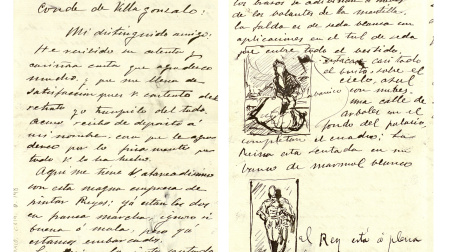 Conde de Villagonzalo:
Mi distinguido amigo:
He recibido su atenta y
carta que agradezco
mucho, y que me llena de
satisfaccion pues k contento del
retrato yo tranquilo del todo
recibo de deposito á
mi nombre, cosa que le agradezco
todo k lo ha hecho.
Aqui me tiene k atareadisimo
con esta magna empresa de
pintar Reyes; ya estan los dos
en buena marcha, ignoro si
buena ó mala, pero ya
estamos embarcados.
los brazos se
de los volantes de la mantilla.
la falda es de seda blanca con
aplicaciones en el tul de seda
que cubre todo el vestido.
casi todo
el busto sobre el
cielo, azul
con nubes.
una calle de
arboles en el
fondo del palacio
completan el cuadro; La
Reina está sentada en un
banco de marmol blanco
el Rey está á plena